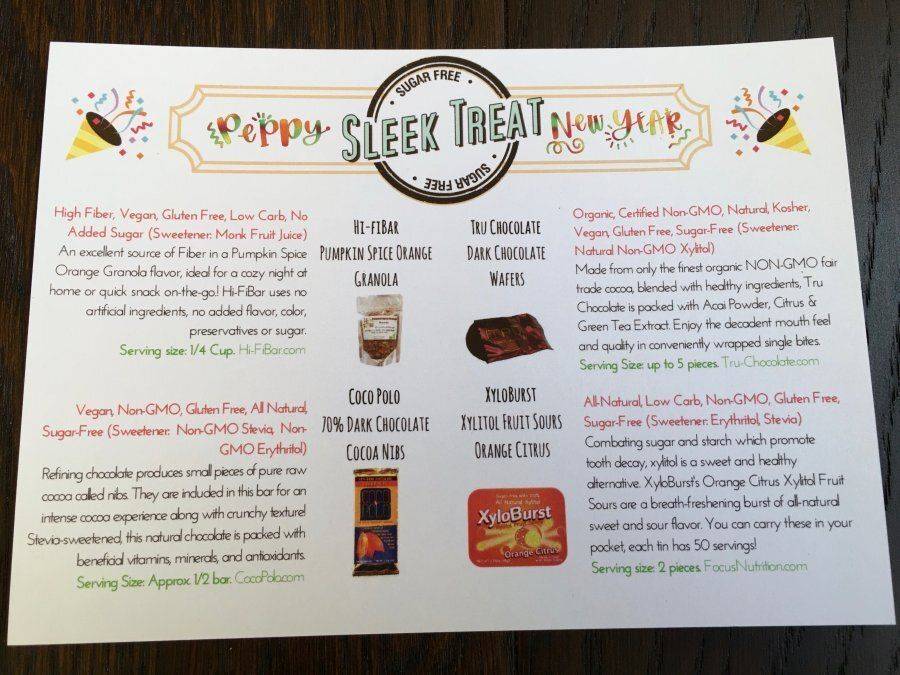 SUGAR FREE
Peppy SLEEK TREAT New Year
SUGAR FREE
High Fiber, Vegan, Gluten Free, Low Carb, No
Added Sugar (Sweetener: Monk Fruit Juice)
An excellent source of Fiber in a Pumpkin Spice
Orange Granola flavor, ideal for a cozy night at
home or quick snack on-the-go! Hi-FiBar uses no
artificial ingredients, no added flavor, color,
preservatives or sugar.
Serving size: 1/4 Cup. Hi-FiBar.com
HI-FIBAR
PUMPKIN SPICE ORANGE
GRANOLA
TRU CHOCOLATE
DARK CHOCOLATE
WAFERS
Organic, Certified Non-GMO, Natural, Kosher,
Vegan, Gluten Free, Sugar-Free (Sweetener:
Natural Non-GMO Xylitol)
Made from only the finest organic NON-GMO fair
trade cocoa, blended with healthy ingredients, Tru
Chocolate is packed with Acai Powder, Citrus &
Green Tea Extract. Enjoy the decadent mouth feel
and quality in conveniently wrapped single bites.
Serving Size: up to 5 pieces. Tru-Chocolate.com
Vegan, Non-GMO, Gluten Free, All Natural,
Sugar-Free (Sweetener: Non-GMO Stevia, Non-
GMO Erythritol)
Refining chocolate produces small pieces of pure raw
cocoa called nibs. They are included in this bar for an
intense cocoa experience along with crunchy texture!
Stevia-sweetened, this natural chocolate is packed with
beneficial vitamins, minerals, and antioxidants.
Serving Size: Approx. 1/2 bar. CocoPolo.com
COCO POLO
70% DARK CHOCOLATE
COCOA NIBS
XYLOBURST
XYLITOL FRUIT SOURS
ORANGE CITRUS
XyloBurst
Orange Citrus
All-Natural, Low Carb, Non-GMO, Gluten Free,
Sugar-Free (Sweetener: Erythritol, Stevia)
Combating sugar and starch which promote
tooth decay, xylitol is a sweet and healthy
alternative. XyloBurst's Orange Citrus Xylitol Fruit
Sours are a breath-freshening burst of all-natural
sweet and sour flavor. You can carry these in your
pocket, each tin has 50 servings!
Serving size: 2 pieces. FocusNutrition.com